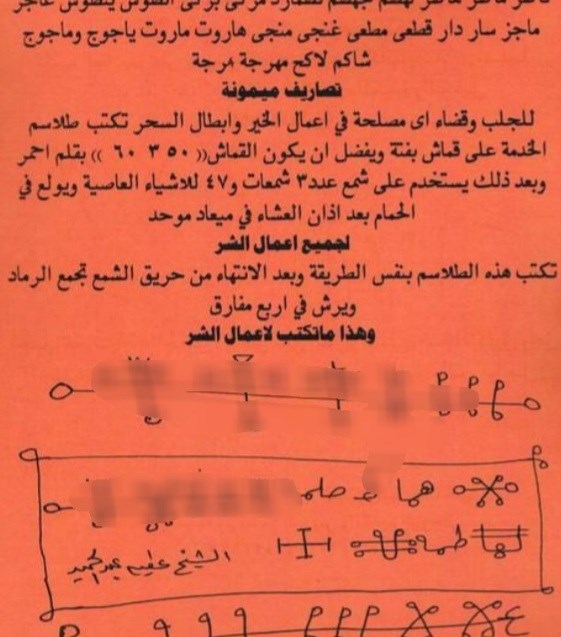 ماجز سار دار قطعى مطعى غنجى منجى هاروت ماروت ياجوج وماجوج
شاكم لاكح مهرجة مرجة
تصاريف ميمونة
للجلب وقضاء اى مصلحة في اعمال الخير وابطال السحر تكتب طلاسم
الخدمة على قماش بفتة ويفضل ان يكون القماش(( ٥٠ ٣ ٦٠ )) بقلم احمر
وبعد ذلك يستخدم على شمع عدد٣ شمعات و٤٧ للاشياء العاصية ويولع في
الحمام بعد اذان العشاء في ميعاد موحد
لجميع اعمال الشر
تكتب هذه الطلاسم بنفس الطريقة وبعد الانتهاء من حريق الشمع تجمع الرماد
ويرش في اربع مفارق
وهذا ماتكتب لاعمال الشر
الشيخ عطيه عبد الحميد